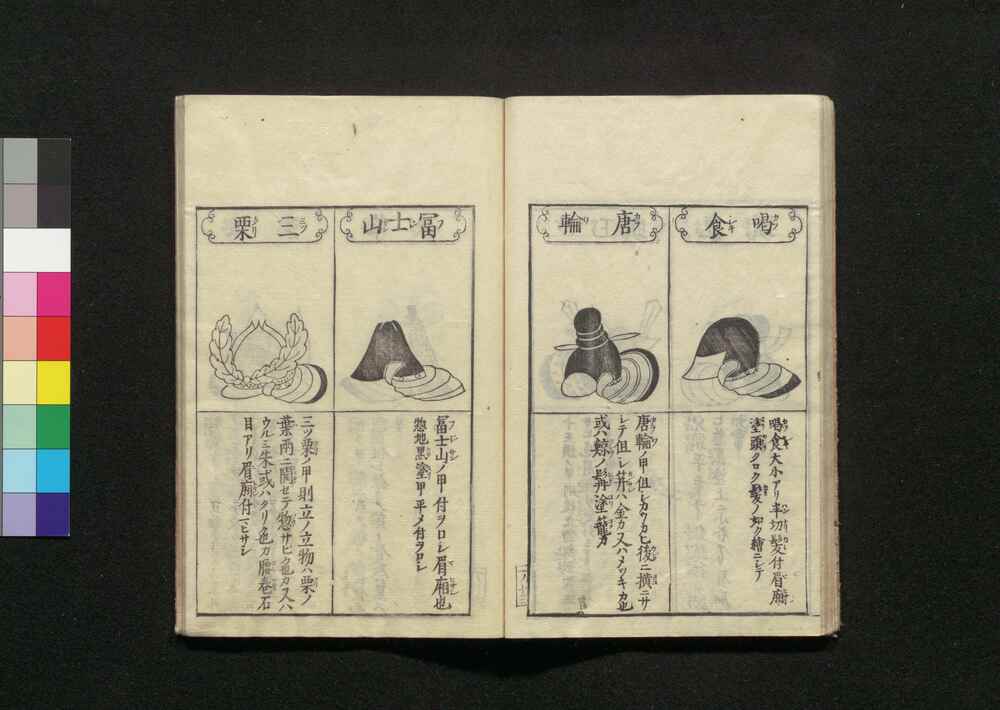 喝食
喝食大小アリ半切髪付眉廂
塗頭クロク髪ノ如ク繪ニシテ
唐輪
唐輪ノ甲但レカウカヒ後ニ横ニサ
レテ但レ笄ハ金カ又ハメツキカ也
或ハ鯨ノ髯塗籠カ
冨士山
冨士山ノ甲付ヲロシ眉廂也
惣地黒塗甲平メ付ヲロシ
三栗
三ツ栗ノ甲則立ノ立物ハ栗ノ
葉兩ニ開セテ惣サビ色カ又ハ
ウルミ朱或ハクリ色カ腰巻石
目アリ眉廂付